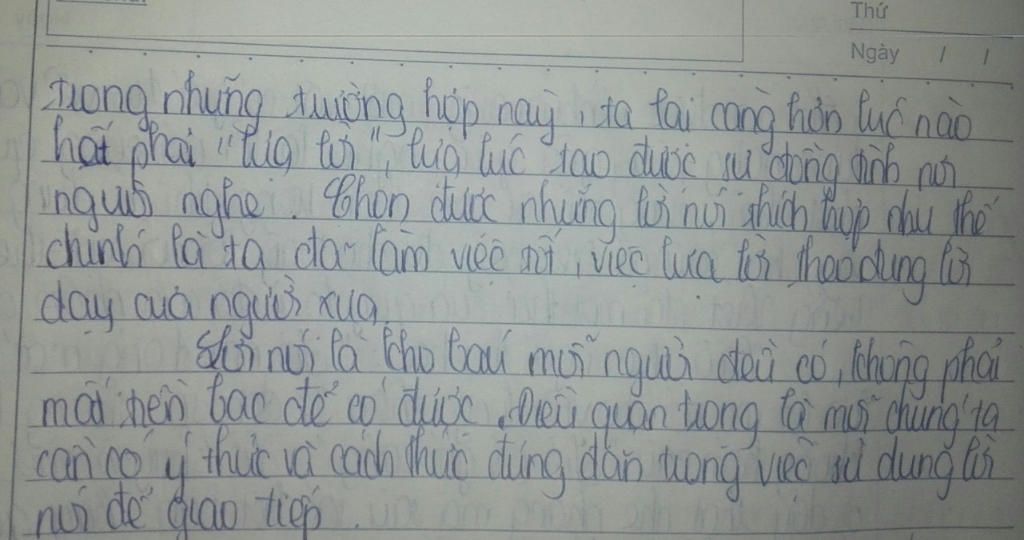 Thứ
Ngày / /
trong những trường hợp này, ta lại càng hơn lúc nào
hết phải "lựa lời", lựa lúc tạo được sự đồng tình nơi
người nghe. Chọn được những lời nói thích hợp như thế
chính là ta đã làm việc tốt, việc lựa lời theo đúng lời
dạy của người xưa.
Lời nói là kho báu mỗi người đều có, không phải
mất tiền bạc để có được. Điều quan trọng là mỗi chúng ta
cần có ý thức và cách thức đúng đắn trong việc sử dụng lời
nói để giao tiếp.